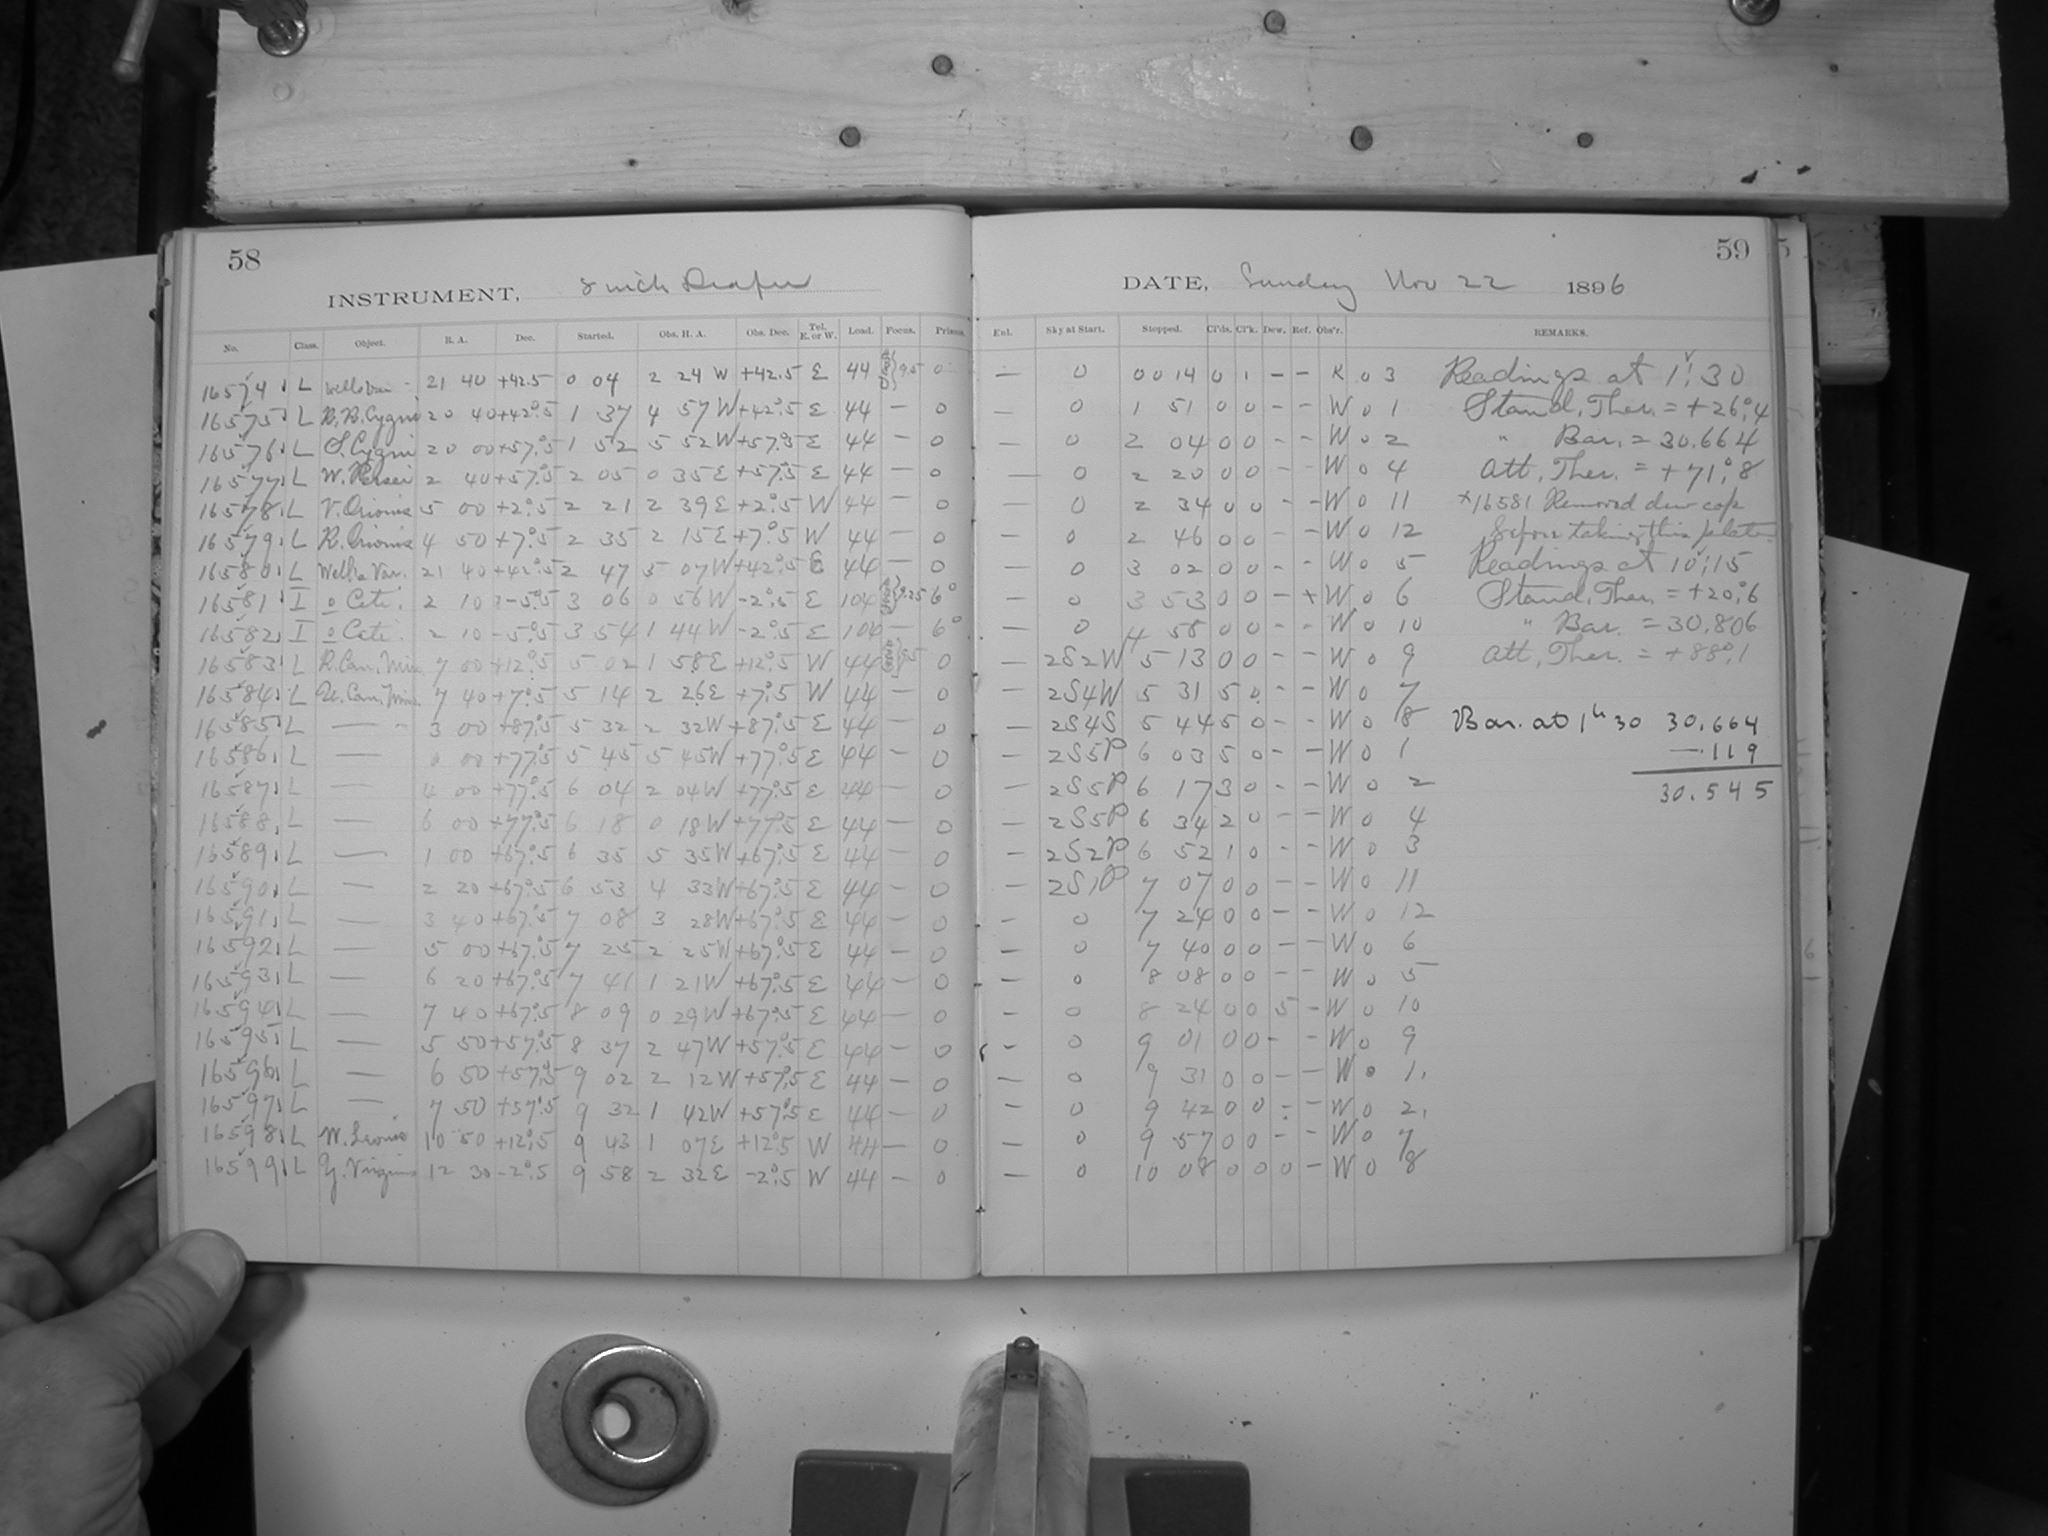 58
INSTRUMENT, 8 inch Draper
No. Class. Object. R. A. Dec. Started. Obs. H. A. Obs. Dec. Tel. E. or W. Lead. Focus. Prisms.
16574 L Wells Var. 21 40 +42.5 0 04 2 24 W +42.5 E 44 9.5 0
16575 L R.R. Cygni 20 40 +42°.5 1 37 4 57 W +42°.5 E 44 — 0
16576 L S. Cygni 20 00 +57°.5 1 52 5 52 W +57°.5 E 44 — 0
16577 L W. Persei 2 40 +57°.5 2 05 0 35 E +57°.5 E 44 — 0
16578 L V. Orionis 5 00 +2°.5 2 21 2 39 E +2°.5 W 44 — 0
16579 L R. Orionis 4 50 +7°.5 2 35 2 15 E +7°.5 W 44 — 0
16580 L Wells Var. 21 40 +42°.5 2 47 5 07 W +42°.5 E 44 — 0
16581 I o Ceti. 2 10 -5°.5 3 06 0 56 W -2°.5 E 104 9.25 6°
16582 I o Ceti. 2 10 -5°.5 3 54 1 44 W -2°.5 E 104 — 6°
16583 L R. Can. Min. 7 00 +12°.5 5 02 1 58 E +12°.5 W 44 9.5 0
16584 L U. Can. Min. 7 40 +7°.5 5 14 2 26 E +7°.5 W 44 — 0
16585 L — 3 00 +87°.5 5 32 2 32 W +87°.5 E 44 — 0
16586 L — 0 00 +77°.5 5 45 5 45 W +77°.5 E 44 — 0
16587 L — 4 00 +77°.5 6 04 2 04 W +77°.5 E 44 — 0
16588 L — 6 00 +77°.5 6 18 0 18 W +77°.5 E 44 — 0
16589 L — 1 00 +67°.5 6 35 5 35 W +67°.5 E 44 — 0
16590 L — 2 20 +67°.5 6 53 4 33 W +67°.5 E 44 — 0
16591 L — 3 40 +67°.5 7 08 3 28 W +67°.5 E 44 — 0
16592 L — 5 00 +67°.5 7 25 2 25 W +67°.5 E 44 — 0
16593 L — 6 20 +67°.5 7 41 1 21 W +67°.5 E 44 — 0
16594 L — 7 40 +67°.5 8 09 0 29 W +67°.5 E 44 — 0
16595 L — 5 50 +57°.5 8 37 2 47 W +57°.5 E 44 — 0
16596 L — 6 50 +57°.5 9 02 2 12 W +57°.5 E 44 — 0
16597 L — 7 50 +57°.5 9 32 1 42 W +57°.5 E 44 — 0
16598 L W. Leonis 10 50 +12°.5 9 43 1 07 E +12°.5 W 44 — 0
16599 L Y. Virginis 12 30 -2°.5 9 58 2 32 E -2°.5 W 44 — 0
59
DATE, Sunday Nov 22 1896
Enl. Sky at Start. Stopped. Cl'ds. Cl'k. Dew. Ref. Obs'r. REMARKS.
— 0 0 0 14 0 1 - - K 0 3
— 0 1 51 0 0 - - W 0 1
— 0 2 04 0 0 - - W 0 2
— 0 2 20 0 0 - - W 0 4
— 0 2 34 0 0 - - W 0 11
— 0 2 46 0 0 - - W 0 12
— 0 3 02 0 0 - - W 0 5
— 0 3 53 0 0 - + W 0 6
— 0 4 58 0 0 - - W 0 10
— 2S2W 5 13 0 0 - - W 0 9
— 2S4W 5 31 5 0 - - W 0 7
— 2S4S 5 44 5 0 - - W 0 8
— 2S5P 6 03 5 0 - - W 0 1
— 2S5P 6 17 3 0 - - W 0 2
— 2S5P 6 34 2 0 - - W 0 4
— 2S2P 6 52 1 0 - - W 0 3
— 2S1P 7 07 0 0 - - W 0 11
— 0 7 24 0 0 - - W 0 12
— 0 7 40 0 0 - - W 0 6
— 0 8 08 0 0 - - W 0 5
— 0 8 24 0 0 5 - W 0 10
— 0 9 01 0 0 - - W 0 9
— 0 9 31 0 0 - - W 0 1.
— 0 9 42 0 0 - - W 0 2.
— 0 9 57 0 0 - - W 0 7
— 0 10 08 0 0 0 - W 0 8
Readings at 1:30
Stand, Ther. = +26°.4
" Bar. = 30.664
Att, Ther. = +71°.8
×16581 Removed dew cap
before taking this plate
Readings at 10:15
Stand, Ther. = +20°.6
" Bar. = 30.806
Att, Ther. = +88°.1
Bar. at 1h 30 30.664
— .119
30.545